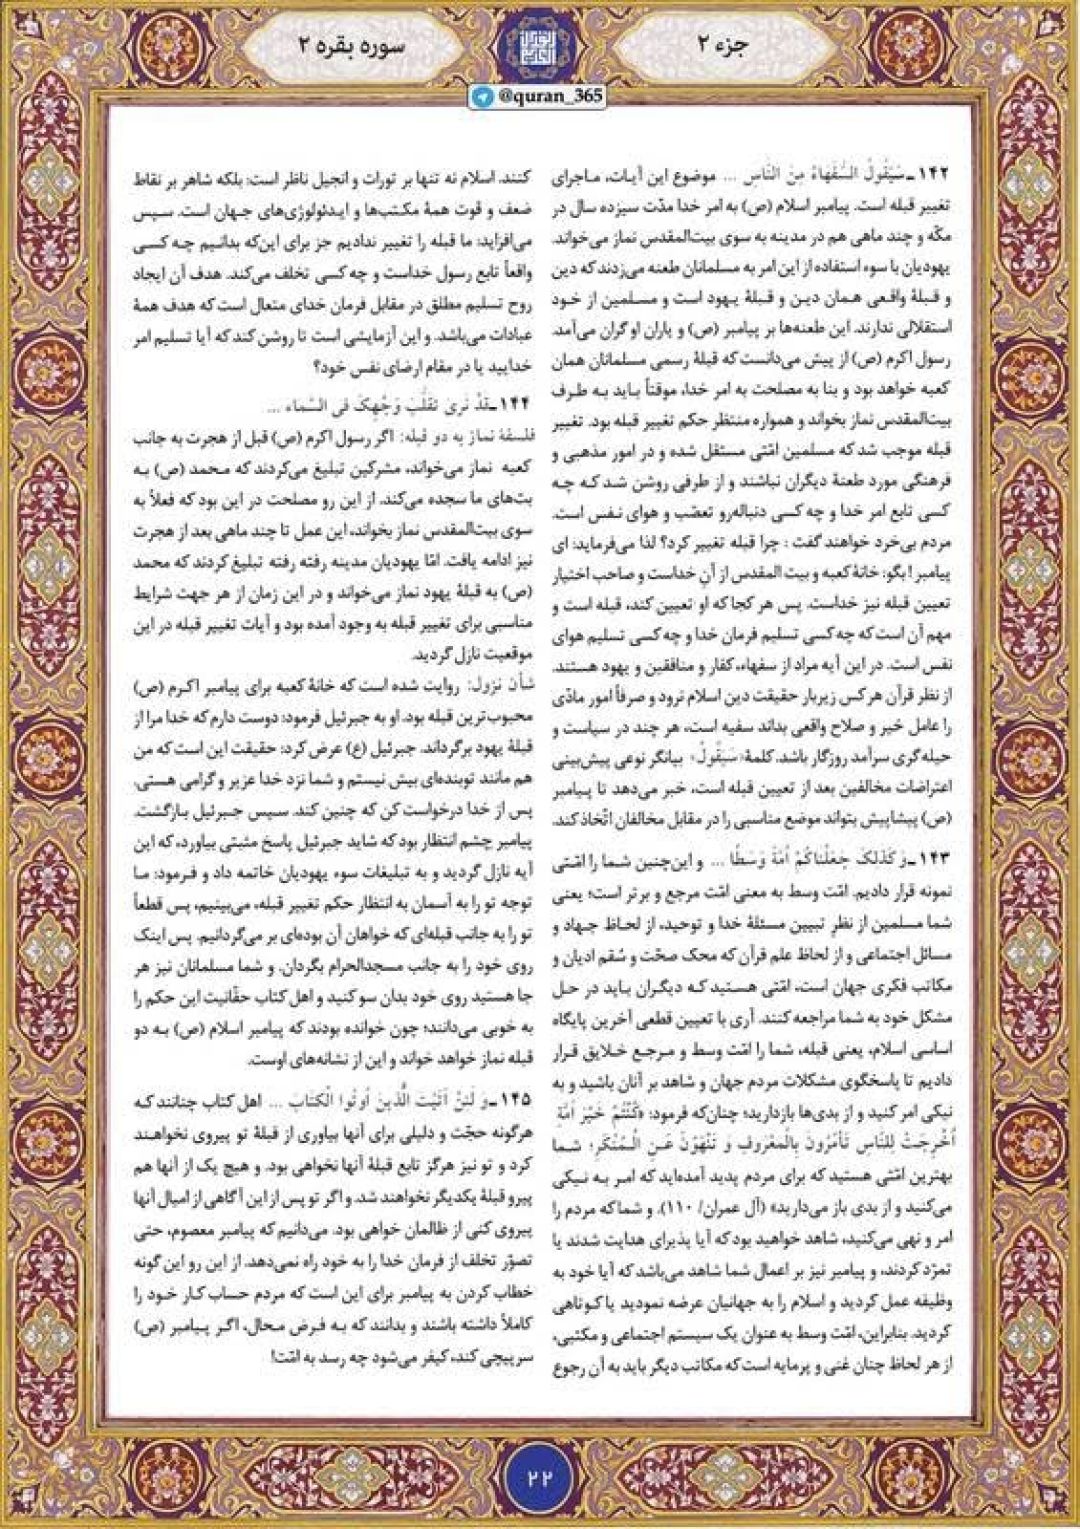 جزء ۲
سوره بقره ۲
@quran_365
۱۴۲ـ سَيَقُولُ السُّفَهَاءُ مِنَ النَّاسِ ... موضوع این آیـات، مـاجرای
تغییر قبله است. پیامبر اسلام (ص) به امر خدا مدّت سیزده سال در
مکّه و چند ماهی هم در مدینه به سوی بیت‌المقدس نماز می‌خواند.
یهودیان با سوء استفاده از این امر به مسلمانان طعنه می‌زدند که دین
و قبلهٔ واقعی همان دین و قبلهٔ یهود است و مسلمین از خود
استقلالی ندارند. این طعنه‌ها بر پیامبر (ص) و یاران او گران می‌آمد.
رسول اکرم (ص) از پیش می‌دانست که قبلهٔ رسمی مسلمانان همان
کعبه خواهد بود و بنا به مصلحت به امر خدا، موقتاً باید به طرف
بیت‌المقدس نماز بخواند و همواره منتظر حکم تغییر قبله بود. تغییر
قبله موجب شد که مسلمین امّتی مستقل شده و در امور مذهبی و
فرهنگی مورد طعنهٔ دیگران نباشند و از طرفی روشن شد که چه
کسی تابع امر خدا و چه کسی دنباله‌رو تعصّب و هوای نفس است.
مردم بی‌خرد خواهند گفت : چرا قبله تغییر کرد؟ لذا می‌فرماید: ای
پیامبر ! بگو: خانهٔ کعبه و بیت المقدس از آنِ خداست و صاحب اختیار
تعیین قبله نیز خداست. پس هر کجا که او تعیین کند، قبله است و
مهم آن است که چه کسی تسلیم فرمان خدا و چه کسی تسلیم هوای
نفس است. در این آیه مراد از سفهاء، کفار و منافقین و یهود هستند.
از نظر قرآن هر کس زیربار حقیقت دین اسلام نرود و صرفاً امور مادّی
را عامل خیر و صلاح واقعی بداند سفیه است، هر چند در سیاست و
حیله‌گری سرآمد روزگار باشد. کلمهٔ «سَيَقُولُ» بیانگر نوعی پیش‌بینی
اعتراضات مخالفین بعد از تعیین قبله است، خبر می‌دهد تا پیامبر
(ص) پیشاپیش بتواند موضع مناسبی را در مقابل مخالفان اتّخاذ کند.
۱۴۳ـ وَ كَذٰلِكَ جَعَلْنَاكُمْ أُمَّةً وَسَطًا ... و این‌چنین شما را امّتی
نمونه قرار دادیم. امّت وسط به معنی امّت مرجع و برتر است؛ یعنی
شما مسلمین از نظرِ تبیین مسئلهٔ خدا و توحید، از لحاظ جهاد و
مسائل اجتماعی و از لحاظ علم قرآن که محک صحّت و سُقم ادیان و
مکاتب فکری جهان است، امّتی هستید که دیگران باید در حل
مشکل خود به شما مراجعه کنند. آری با تعیین قطعی آخرین پایگاه
اساسی اسلام، یعنی قبله، شما را امّت وسط و مرجع خلایق قرار
دادیم تا پاسخگوی مشکلات مردم جهان و شاهد بر آنان باشید و به
نیکی امر کنید و از بدی‌ها بازدارید؛ چنان‌که فرمود: «كُنْتُمْ خَيْرَ أُمَّةٍ
أُخْرِجَتْ لِلنَّاسِ تَأْمُرُونَ بِالْمَعْرُوفِ وَ تَنْهَوْنَ عَنِ الْمُنْكَرِ؛ شما
بهترین امّتی هستید که برای مردم پدید آمده‌اید که امر به نیکی
می‌کنید و از بدی باز می‌دارید» (آل عمران/ ۱۱۰). و شما که مردم را
امر و نهی می‌کنید، شاهد خواهید بود که آیا پذیرای هدایت شدند یا
تمرّد کردند، و پیامبر نیز بر اعمال شما شاهد می‌باشد که آیا خود به
وظیفه عمل کردید و اسلام را به جهانیان عرضه نمودید یا کوتاهی
کردید. بنابراین، امّت وسط به عنوان یک سیستم اجتماعی و مکتبی،
از هر لحاظ چنان غنی و پرمایه است که مکاتب دیگر باید به آن رجوع
کنند. اسلام نه تنها بر تورات و انجیل ناظر است؛ بلکه شاهر بر نقاط
ضعف و قوت همهٔ مکتب‌ها و ایدئولوژی‌های جهان است. سپس
می‌افزاید: ما قبله را تغییر ندادیم جز برای این‌که بدانیم چه کسی
واقعاً تابع رسول خداست و چه کسی تخلف می‌کند. هدف آن ایجاد
روح تسلیم مطلق در مقابل فرمان خدای متعال است که هدف همهٔ
عبادات می‌باشد. و این آزمایشی است تا روشن کند که آیا تسلیم امر
خدایید یا در مقام ارضای نفس خود؟
۱۴۴ـ قَدْ نَرىٰ تَقَلُّبَ وَجْهِكَ فِى السَّمَاءِ ...
فلسفهٔ نماز به دو قبله: اگر رسول اکرم (ص) قبل از هجرت به جانب
کعبه نماز می‌خواند، مشرکین تبلیغ می‌کردند که محمد (ص) به
بت‌های ما سجده می‌کند. از این رو مصلحت در این بود که فعلاً به
سوی بیت‌المقدس نماز بخواند، این عمل تا چند ماهی بعد از هجرت
نیز ادامه یافت. امّا یهودیان مدینه رفته رفته تبلیغ کردند که محمد
(ص) به قبلهٔ یهود نماز می‌خواند و در این زمان از هر جهت شرایط
مناسبی برای تغییر قبله به وجود آمده بود و آیات تغییر قبله در این
موقعیت نازل گردید.
شأن نزول: روایت شده است که خانهٔ کعبه برای پیامبر اکرم (ص)
محبوب‌ترین قبله بود. او به جبرئیل فرمود: دوست دارم که خدا مرا از
قبلهٔ یهود برگرداند. جبرئیل (ع) عرض کرد: حقیقت این است که من
هم مانند تو بنده‌ای بیش نیستم و شما نزد خدا عزیز و گرامی هستی.
پس از خدا درخواست کن که چنین کند. سپس جبرئیل بازگشت.
پیامبر چشم انتظار بود که شاید جبرئیل پاسخ مثبتی بیاورد، که این
آیه نازل گردید و به تبلیغات سوء یهودیان خاتمه داد و فرمود: ما
توجه تو را به آسمان به انتظار حکم تغییر قبله، می‌بینیم، پس قطعاً
تو را به جانب قبله‌ای که خواهان آن بوده‌ای بر می‌گردانیم. پس اینک
روی خود را به جانب مسجدالحرام بگردان. و شما مسلمانان نیز هر
جا هستید روی خود بدان سو کنید و اهل کتاب حقّانیت این حکم را
به خوبی می‌دانند؛ چون خوانده بودند که پیامبر اسلام (ص) به دو
قبله نماز خواهد خواند و این از نشانه‌های اوست.
۱۴۵ـ وَ لَئِنْ أَتَيْتَ الَّذِينَ أُوتُوا الْكِتَابَ ... اهل کتاب چنانند که
هرگونه حجّت و دلیلی برای آنها بیاوری از قبلهٔ تو پیروی نخواهند
کرد و تو نیز هرگز تابع قبلهٔ آنها نخواهی بود. و هیچ یک از آنها هم
پیرو قبلهٔ یکدیگر نخواهند شد. و اگر تو پس از این آگاهی از امیال آنها
پیروی کنی از ظالمان خواهی بود. می‌دانیم که پیامبر معصوم، حتی
تصوّر تخلف از فرمان خدا را به خود راه نمی‌دهد. از این رو این گونه
خطاب کردن به پیامبر برای این است که مردم حساب کار خود را
کاملاً داشته باشند و بدانند که به فرض محال، اگر پیامبر (ص)
سرپیچی کند، کیفر می‌شود چه رسد به امّت!
۲۲